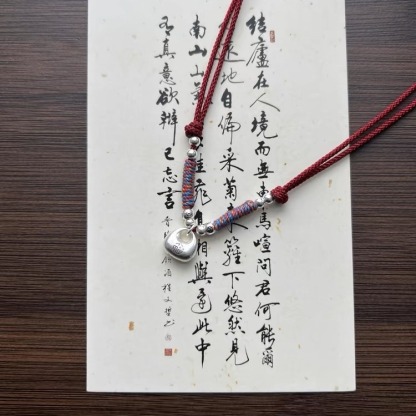 結廬在人境而無車馬喧問君何能爾
遠地自偏采菊東籬下悠然見
南山山氣佳飛鳥相與還此中
有真意欲辯已忘言